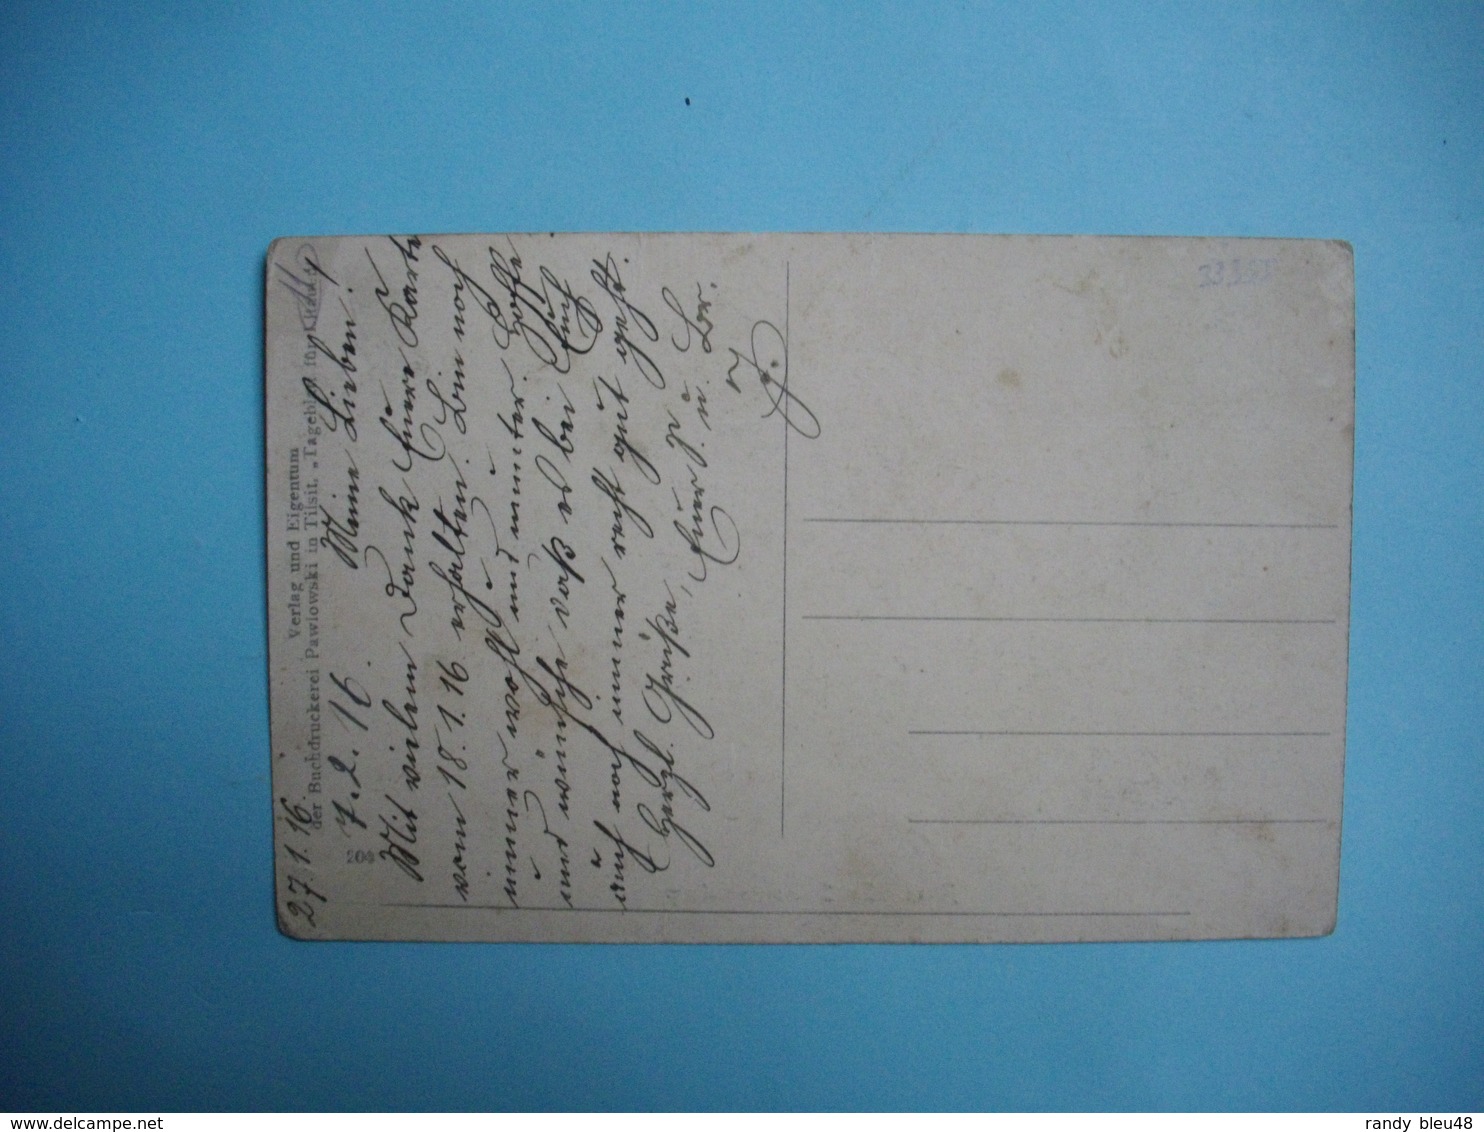 27.1.16.
Verlag und Eigentum
der Buchdruckerei Pawlowski in Tilsit, „Tagebl. für
204
7.2.16. Meine Lieben!
Mit vielem Dank Euere Karte
vom 18.1.16 erhalten. Bin noch
immer wohl und munter. Hoffe
und wünsche daß es bei Euch
auch noch immer recht gut geht.
Herzl. Grüße, Euer S. u. Br.
J.
www.delcampe.net
randy_bleu48